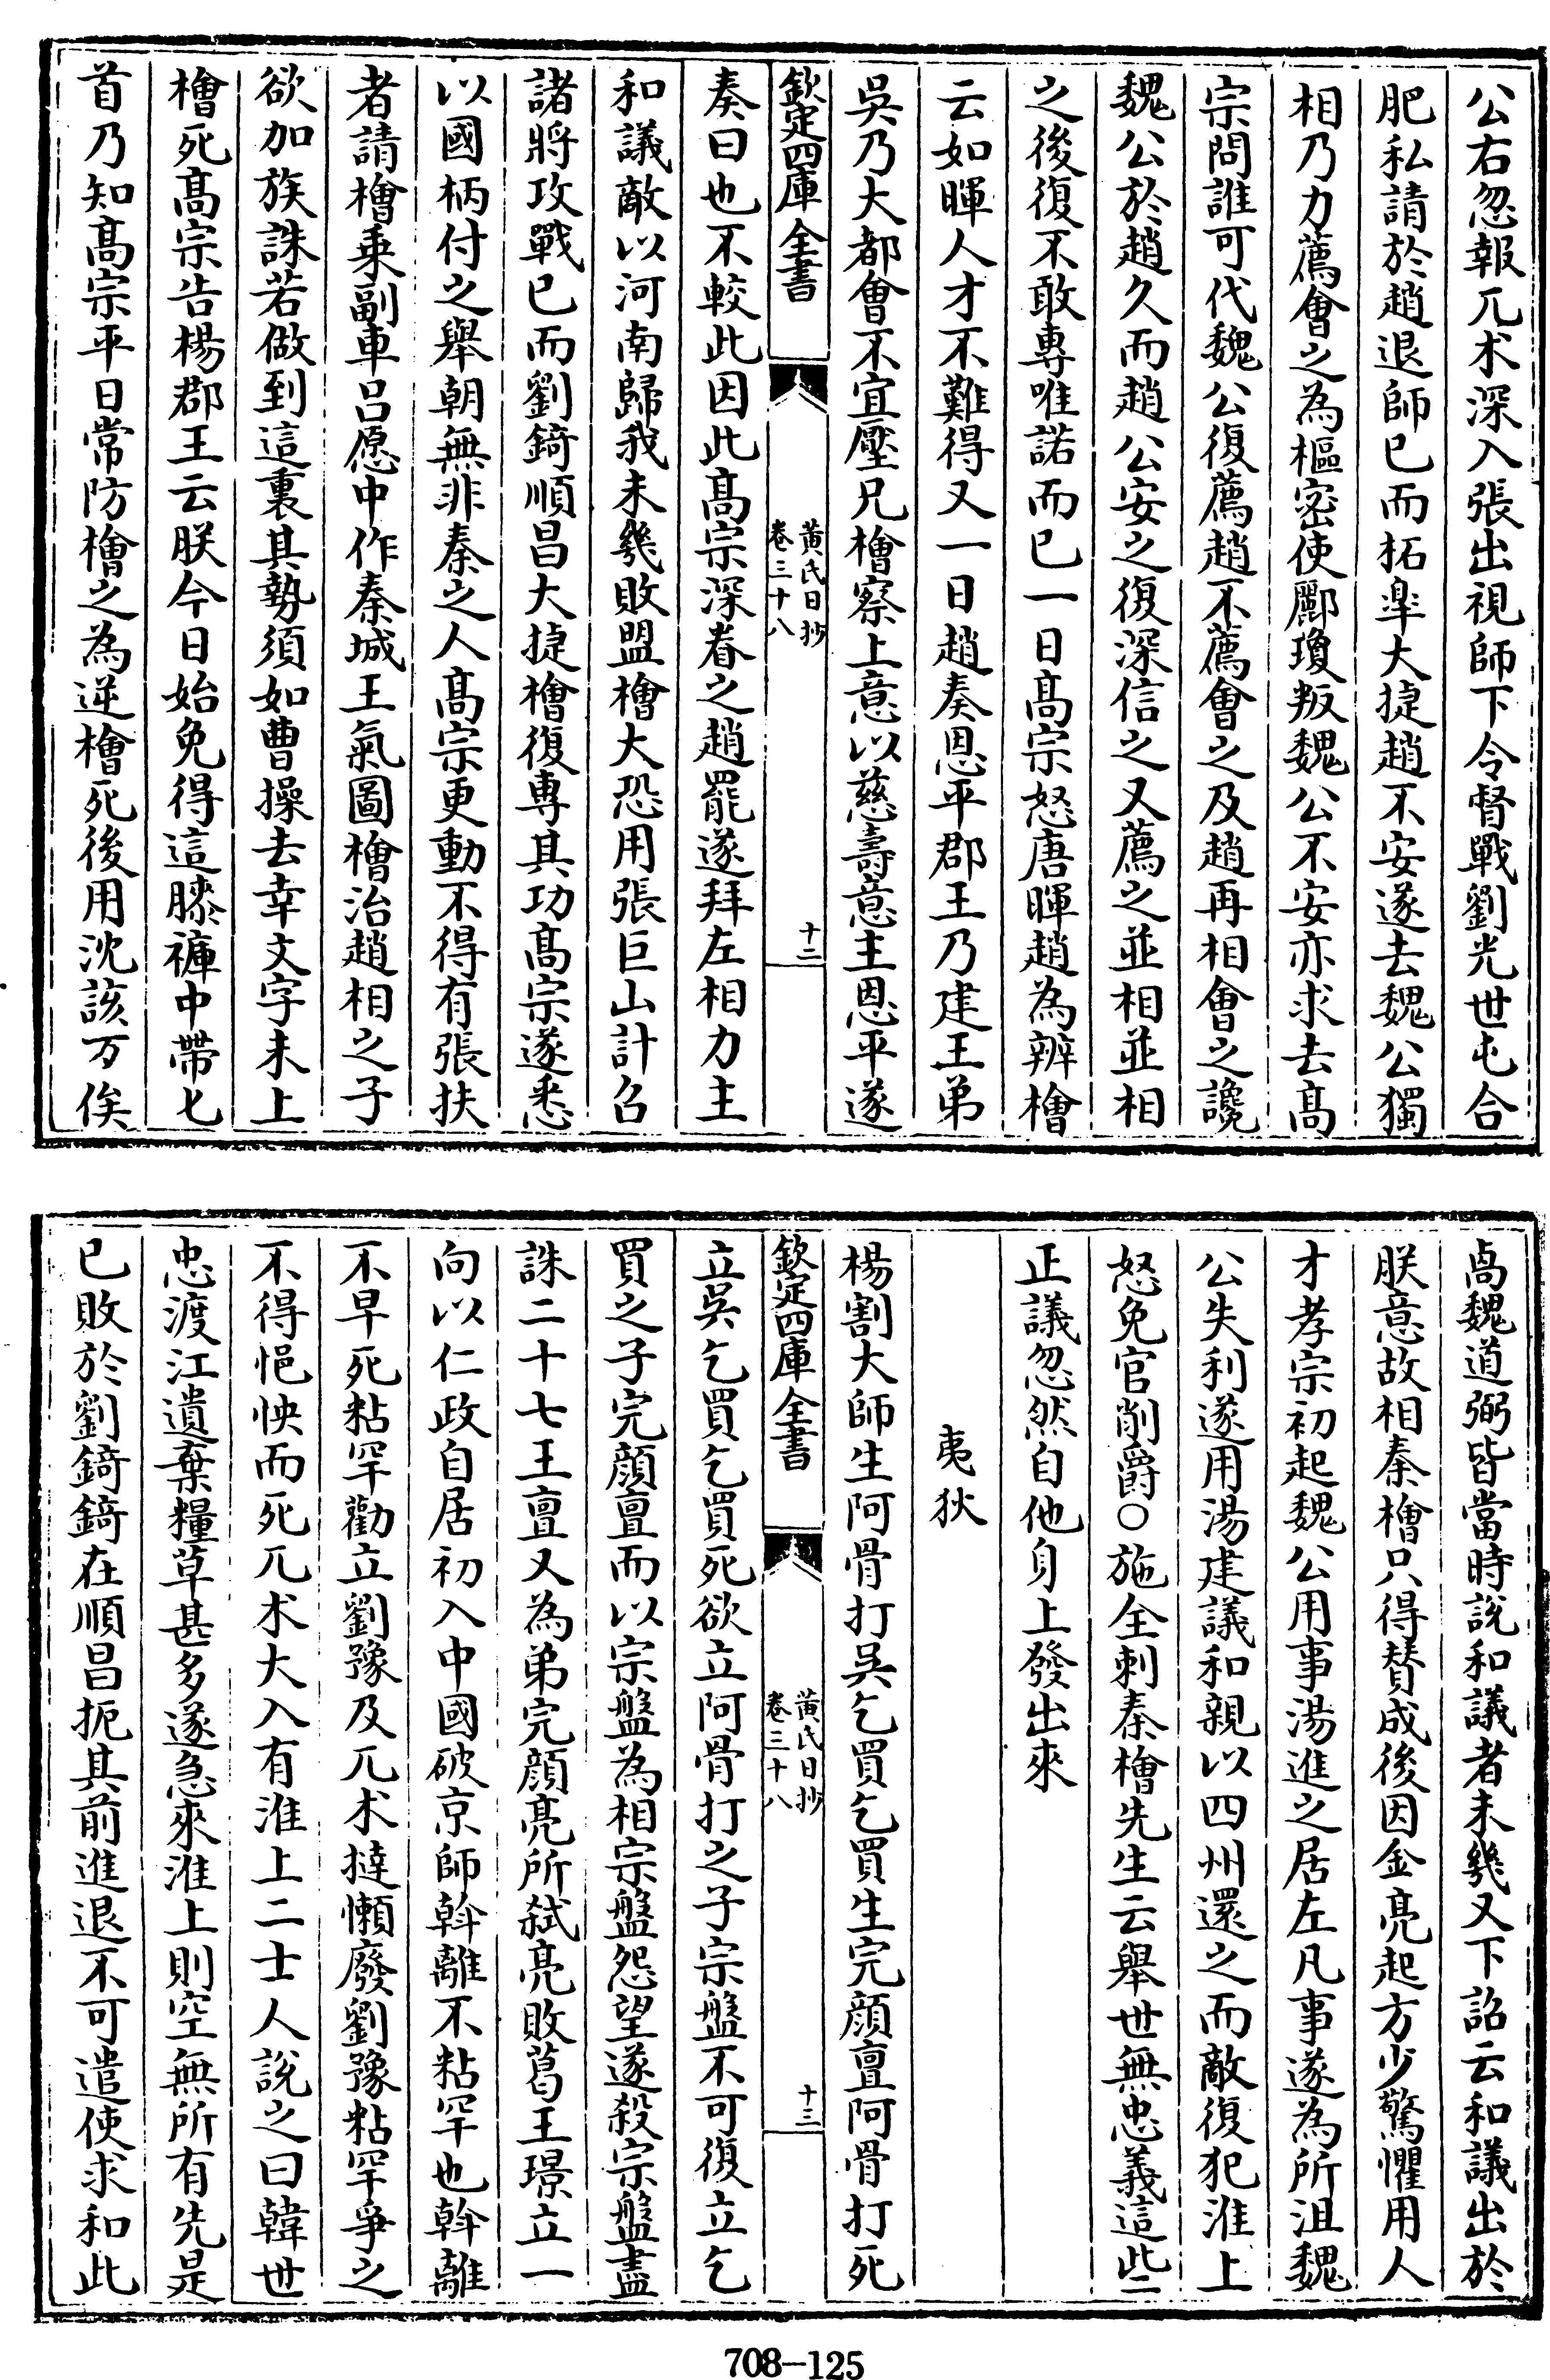 公右忽報兀朮深入張出視師下令督戰劉光世屯合
肥私請於趙退師已而拓臯大捷趙不安遂去魏公獨
相乃力薦會之為樞密使酈瓊叛魏公不安亦求去髙
宗問誰可代魏公復薦趙不薦會之及趙再相會之讒
魏公於趙久而趙公安之復深信之又薦之並相並相
之後復不敢專唯諾而已一日髙宗怒唐暉趙為辨檜
云如暉人才不難得又一日趙奏恩平郡王乃建王弟
吳乃大都會不宜壓兄檜察上意以慈壽意主恩平遂
欽定四庫全書
黄氏日抄
卷三十八
十二
奏曰也不較此因此髙宗深眷之趙罷遂拜左相力主
和議敵以河南歸我未幾敗盟檜大恐用張巨山計召
諸將攻戰已而劉錡順昌大捷檜復専其功髙宗遂悉
以國柄付之舉朝無非秦之人髙宗更動不得有張扶
者請檜乗副車吕愿中作秦城王氣圖檜治趙相之子
欲加族誅若做到這裏其勢須如曹操去幸文字未上
檜死髙宗告楊郡王云朕今日始免得這膝褲中帶匕
首乃知髙宗平日常防檜之為逆檜死後用沈該万俟
卨魏道弼皆當時說和議者未幾又下詔云和議出於
朕意故相秦檜只得賛成後因金亮起方少驚懼用人
才孝宗初起魏公用事湯進之居左凡事遂為所沮魏
公失利遂用湯建議和親以四州還之而敵復犯淮上
怒免官削爵○施全刺秦檜先生云舉世無忠義這些
正議忽然自他身上發出來
夷狄
楊割大師生阿骨打吳乞買乞買生完顔亶阿骨打死
欽定四庫全書
黄氏日抄
卷三十八
十三
立吳乞買乞買死欲立阿骨打之子宗盤不可復立乞
買之子完顔亶而以宗盤為相宗盤怨望遂殺宗盤盡
誅二十七王亶又為弟完顔亮所弑亮敗葛王璟立一
向以仁政自居初入中國破京師斡離不粘罕也斡離
不早死粘罕勸立劉豫及兀朮撻懶廢劉豫粘罕爭之
不得悒怏而死兀朮大入有淮上二士人說之曰韓世
忠渡江遺棄糧草甚多遂急來淮上則空無所有先是
已敗於劉錡錡在順昌扼其前進退不可遣使求和此
708-125